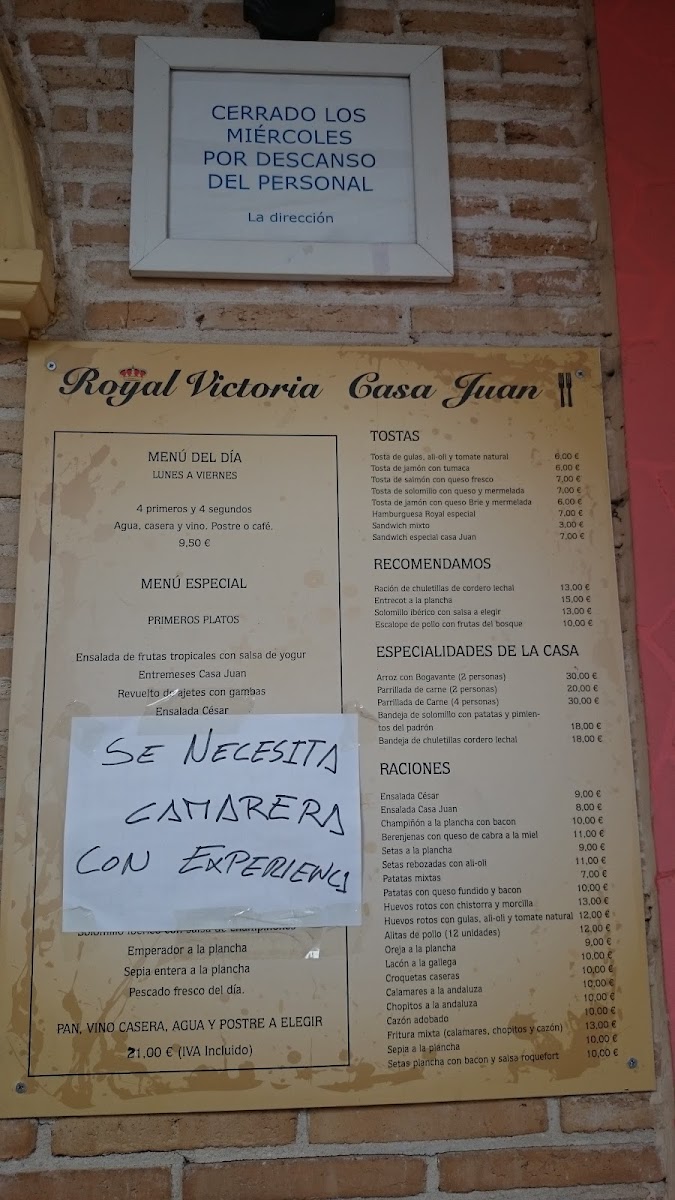 CERRADO LOS
MIÉRCOLES
POR DESCANSO
DEL PERSONAL
La dirección
Royal Victoria Casa Juan
MENÚ DEL DÍA
LUNES A VIERNES
4 primeros y 4 segundos
Agua, casera y vino. Postre o café.
9,50 €
MENÚ ESPECIAL
PRIMEROS PLATOS
Ensalada de frutas tropicales con salsa de yogur
Entremeses Casa Juan
Revuelto de ajetes con gambas
Ensalada César
SE NECESITA
CAMARERA
CON EXPERIENCI
Solomillo ibérico con salsa de champiñones
Emperador a la plancha
Sepia entera a la plancha
Pescado fresco del día.
PAN, VINO CASERA, AGUA Y POSTRE A ELEGIR
21.00 € (IVA Incluido)
TOSTAS
Tosta de gulas, ali-oli y tomate natural 6,00 €
Tosta de jamón con tumaca 6,00 €
Tosta de salmón con queso fresco 7,00 €
Tosta de solomillo con queso y mermelada 7,00 €
Tosta de jamón con queso Brie y mermelada 6,00 €
Hamburguesa Royal especial 7,00 €
Sandwich mixto 3,00 €
Sandwich especial casa Juan 7,00 €
RECOMENDAMOS
Ración de chuletillas de cordero lechal 13,00 €
Entrecot a la plancha 15,00 €
Solomillo ibérico con salsa a elegir 13,00 €
Escalope de pollo con frutas del bosque 10,00 €
ESPECIALIDADES DE LA CASA
Arroz con Bogavante (2 personas) 30,00 €
Parrillada de carne (2 personas) 20,00 €
Parrillada de Carne (4 personas) 30,00 €
Bandeja de solomillo con patatas y pimien-
tos del padrón 18,00 €
Bandeja de chuletillas cordero lechal 18,00 €
RACIONES
Ensalada César 9,00 €
Ensalada Casa Juan 8,00 €
Champiñón a la plancha con bacon 10,00 €
Berenjenas con queso de cabra a la miel 11,00 €
Setas a la plancha 9,00 €
Setas rebozadas con ali-oli 11,00 €
Patatas mixtas 7,00 €
Patatas con queso fundido y bacon 10,00 €
Huevos rotos con chistorra y morcilla 13,00 €
Huevos rotos con gulas, ali-oli y tomate natural 12,00 €
Alitas de pollo (12 unidades) 12,00 €
Oreja a la plancha 9,00 €
Lacón a la gallega 10,00 €
Croquetas caseras 10,00 €
Calamares a la andaluza 10,00 €
Chopitos a la andaluza 10,00 €
Cazón adobado 10,00 €
Fritura mixta (calamares, chopitos y cazón) 13,00 €
Sepia a la plancha 10,00 €
Setas plancha con bacon y salsa roquefort 10,00 €